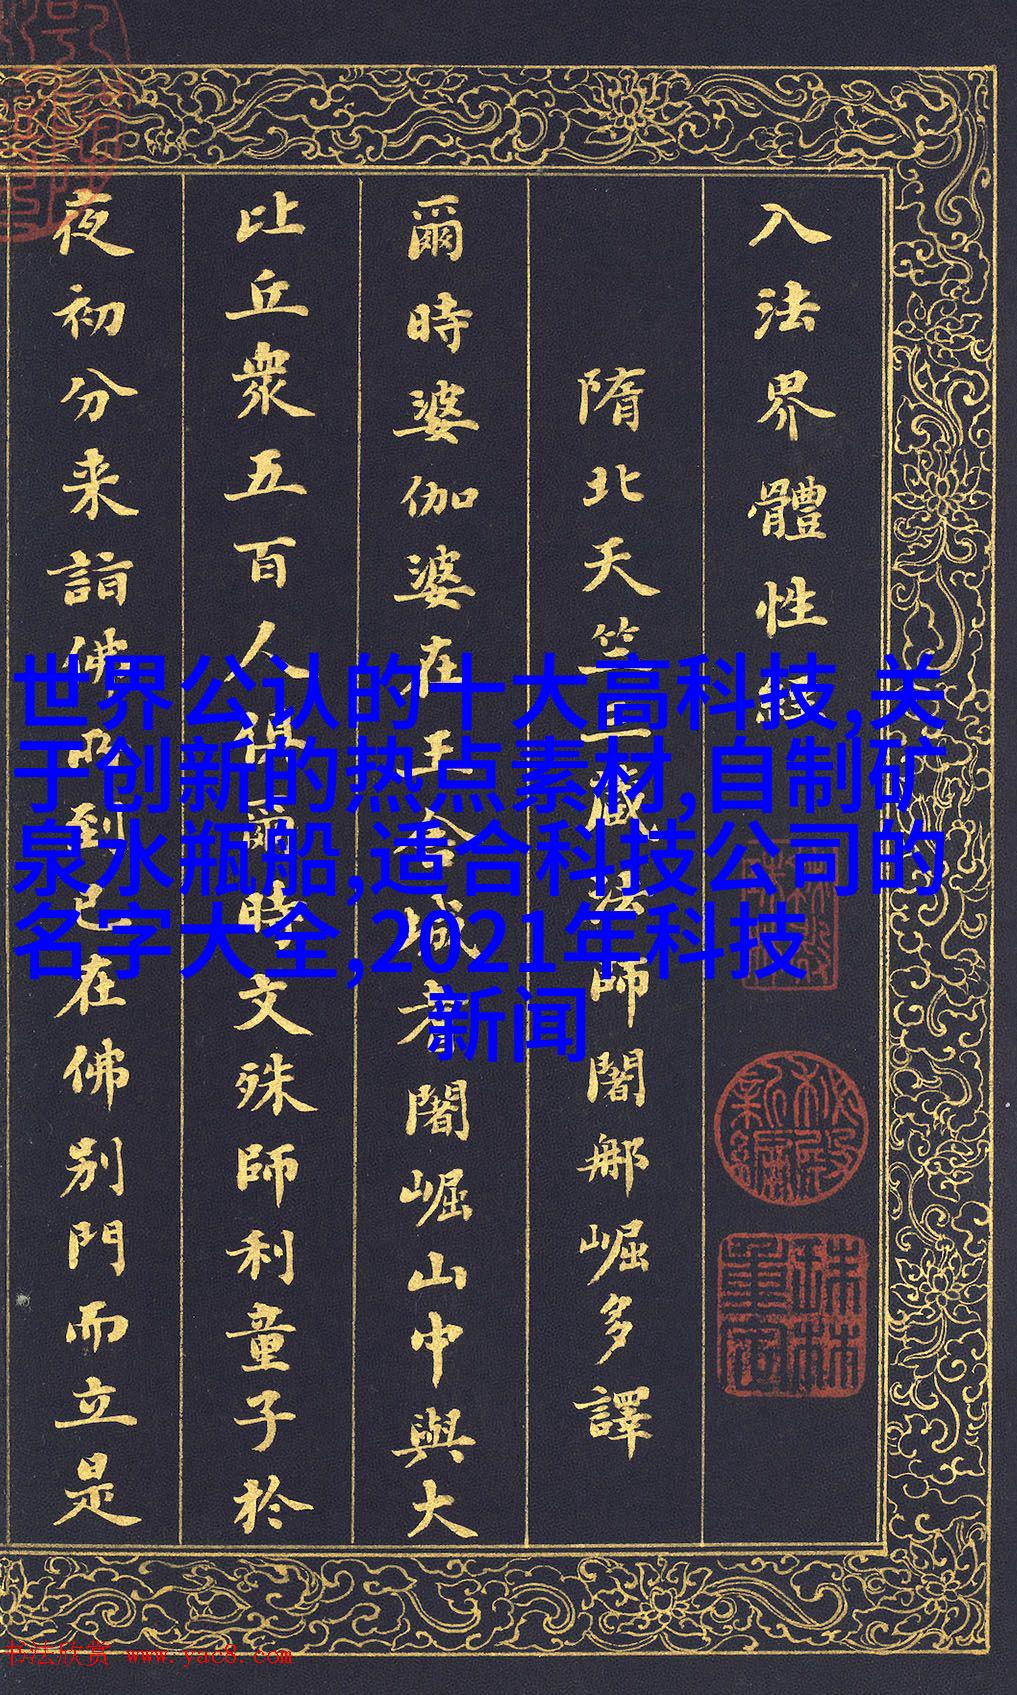 入法界體性經
隋北天竺三藏法師闍那崛多譯
爾時婆伽婆在王舍城耆闍崛山中與大
比丘眾五百人俱爾時文殊師利童子於
夜初分来詣佛所到已在佛別門而立是
秘殿
新編
珠林
重定
世界公认的十大高科技,关
于创新的热点素材,自制矿
泉水瓶船,适合科技公司的
名字大全,2021年科技
新闻
书法欣赏 www.yac8.com